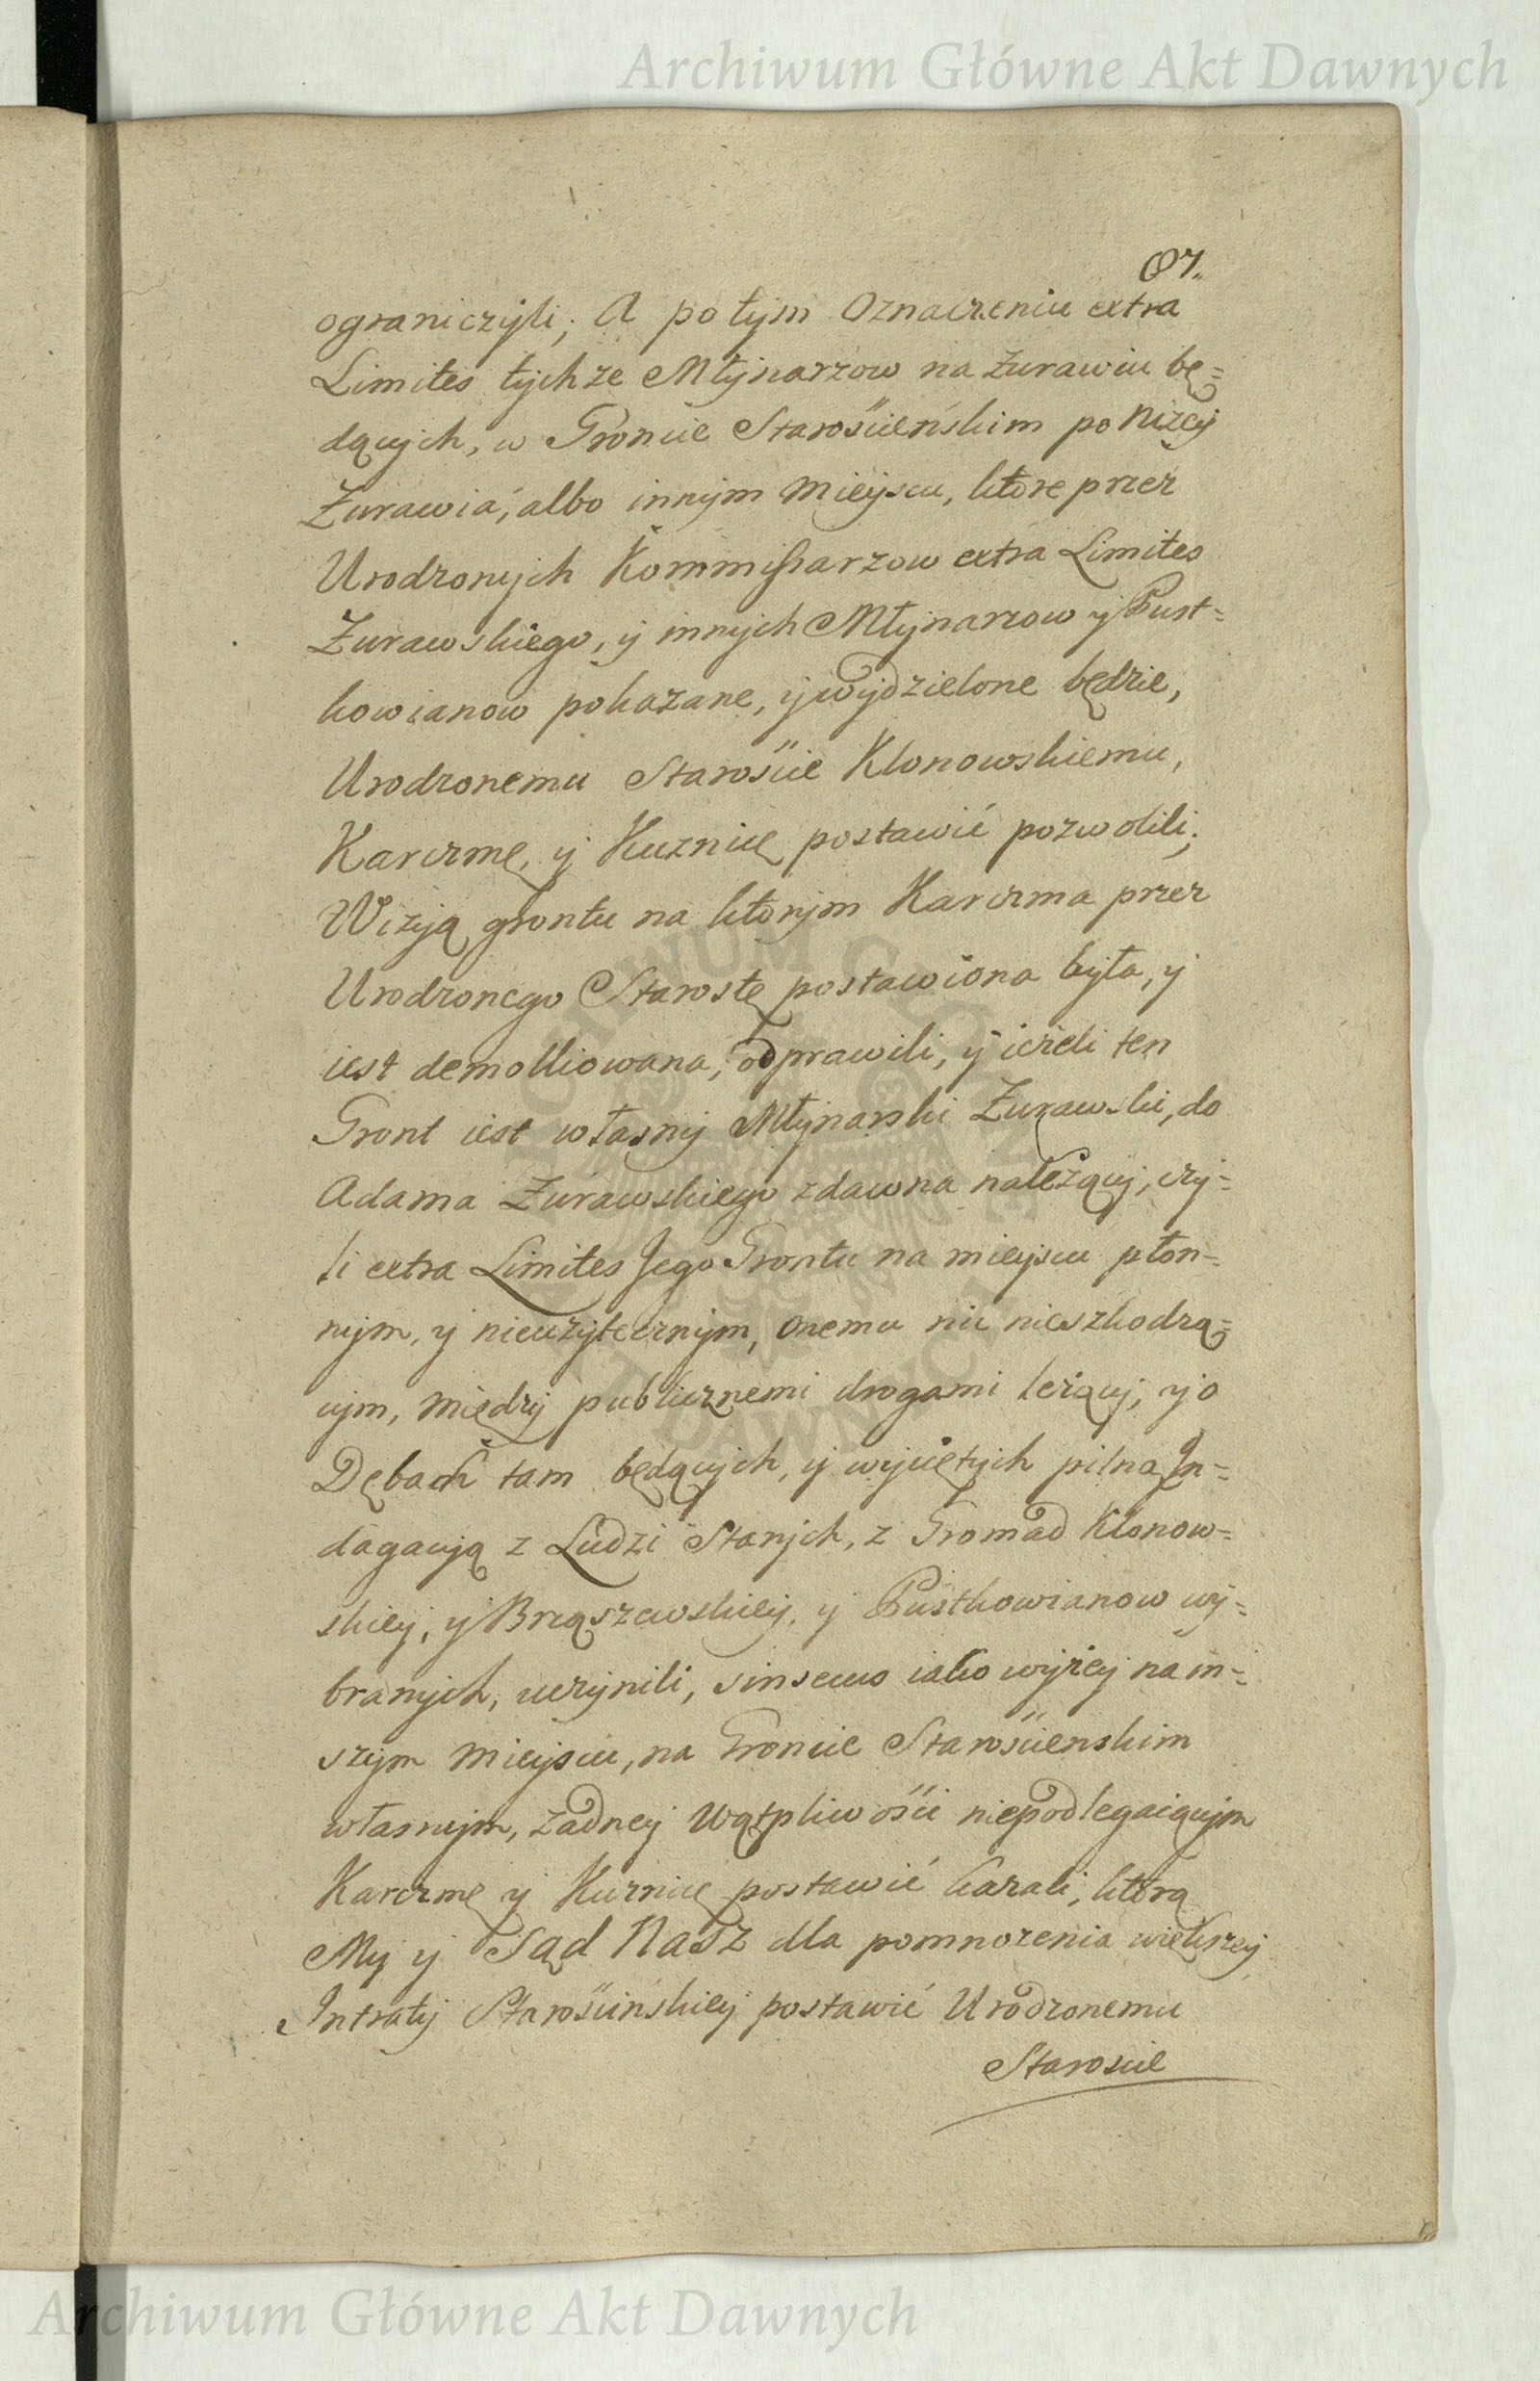 Archiwum Główne Akt Dawnych
87.
ograniczyli; A po tym Oznaczeniu extra
Limites tychże Młynarzow na Żurawiu bę=
dących, w Groncie Starościeńskim poniżey
Żurawia, albo innym mieyscu, ktore przez
Urodzonych Kommissarzow extra Limites
Żurawskiego, y innych Młynarzow y Pust=
kowianow pokazane, y wydzielone będzie,
Urodzonemu Starościie Klonowskiemu,
Karczmę, y Kuznicę postawić pozwolili;
Wizyą grontu na ktorym Karczma przez
Urodzonego Starostę postawiona była, y
iest demolliowana, odprawili, y ieżeli ten
Gront iest własny Młynarski Żurawski, do
Adama Żurawskiego zdawna należący, czy=
li extra Limites Jego Grontu na mieyscu płon=
nym, y nieużytecznym, onemu nic nieszkodzą=
cym, między publicznemi drogami leżący, y o
Dębach tam będących, y wyciętych pilną In=
dagacyą z Ludzi Starych, z Gromad Klonow=
skiey, y Brąszewskiey, y Pustkowianow wy=
branych, uczynili, sin secus iako wyżey na in=
szym mieyscu, na Groncie Starościenskim
własnym, żadney wątpliwości niepodlegaiącym
Karczmę y Kuznicę postawić kazali, ktorą
My y Sąd Nasz dla pomnożenia większey
Intraty Starościńskiey postawić Urodzonemu
Staroscie
Archiwum Główne Akt Dawnych